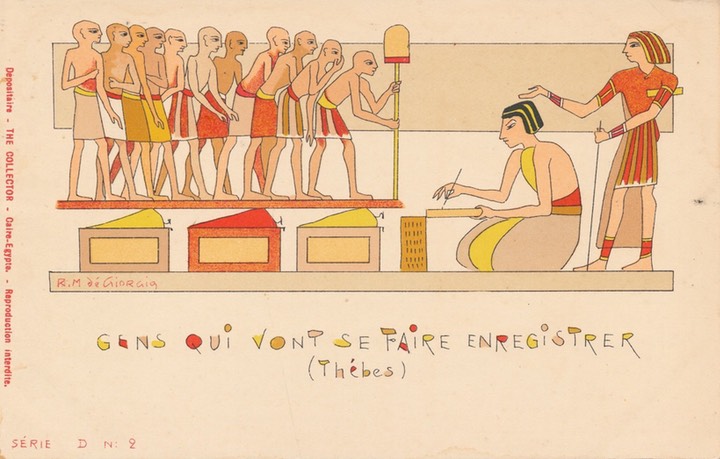 Depositaire - THE COLLECTOR - Caire-Egypte. - Reproduction interdite.
R.M de GIORGIO
GENS QUI VONT SE FAIRE ENREGISTRER
(Thébes)
SÉRIE D N: 2